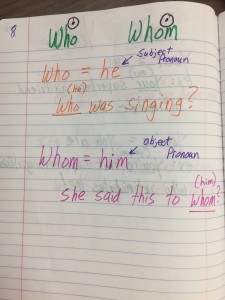 8
Who Whom
Subject
Pronoun
Who = he
(he)
Who was singing?
object
Pronoun
Whom = him
(him)
She said this to whom?